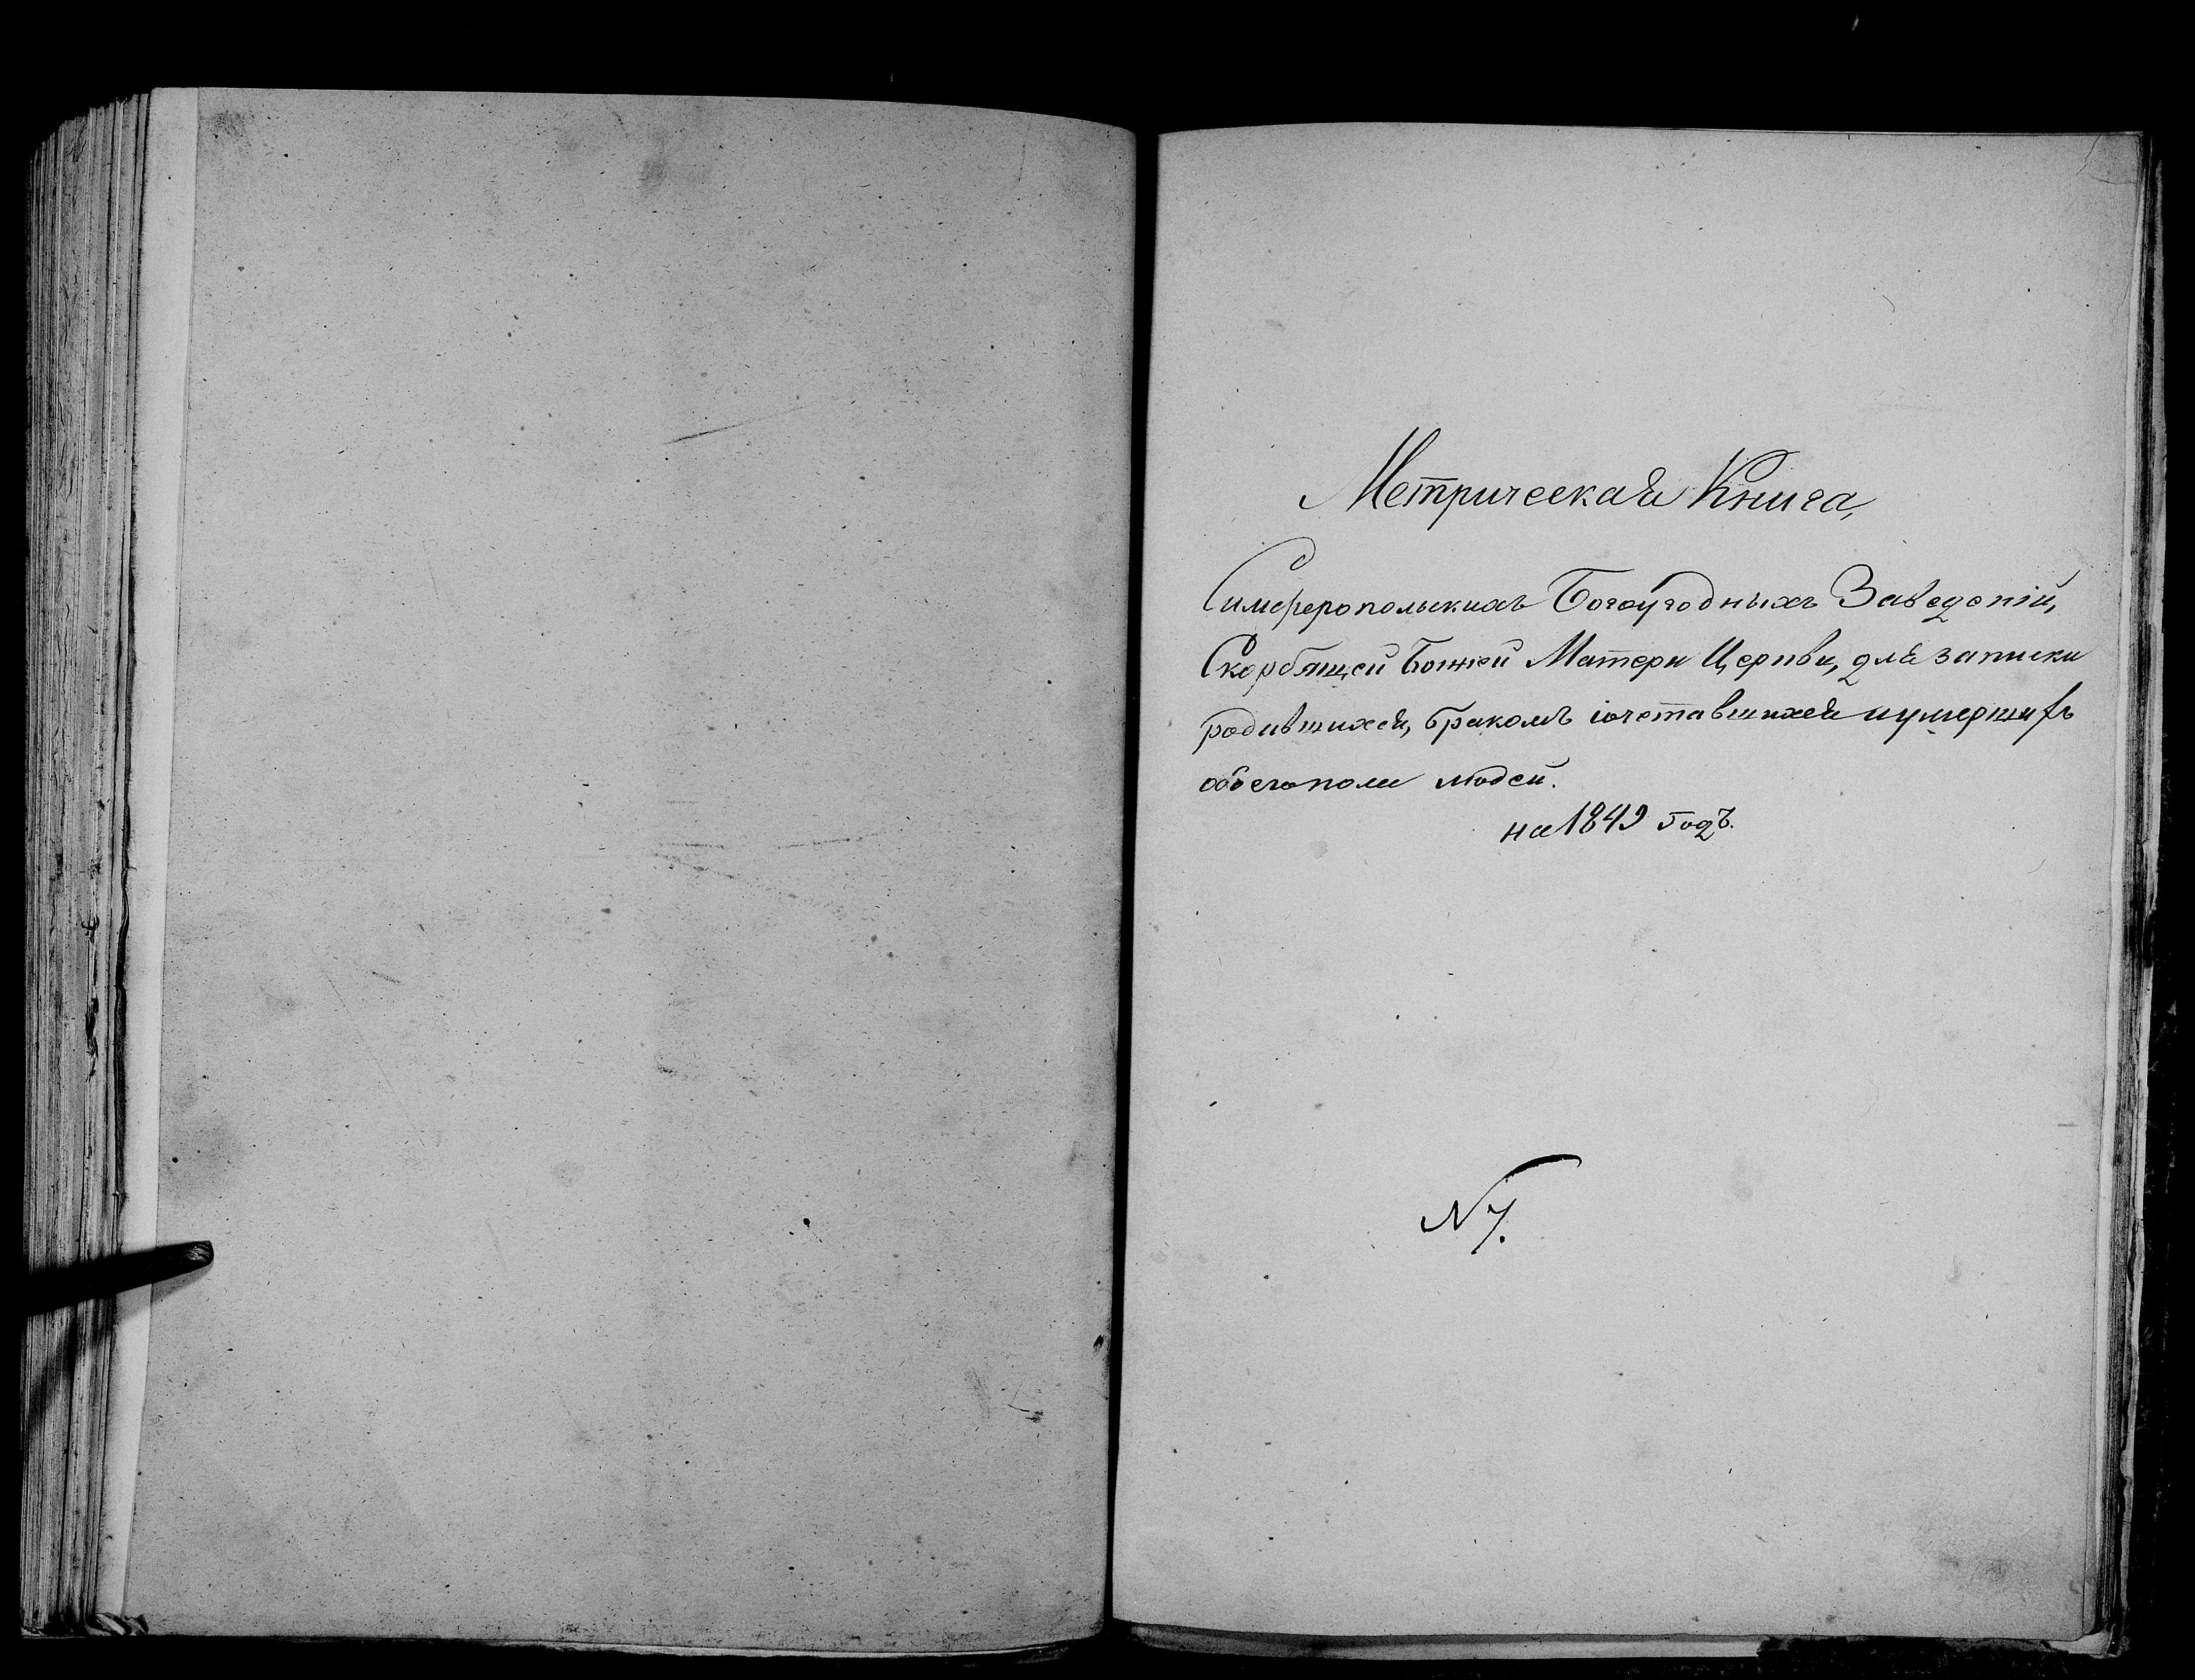 Метрическая Книга,
Симферопольскихъ Богоугодныхъ Заведеній,
Скорбящей Божіей Матери Церкви, для записки
родившихся, бракомъ сочетавшихся и умершихъ
обоего пола людей.
на 1849 годъ.
N 7.